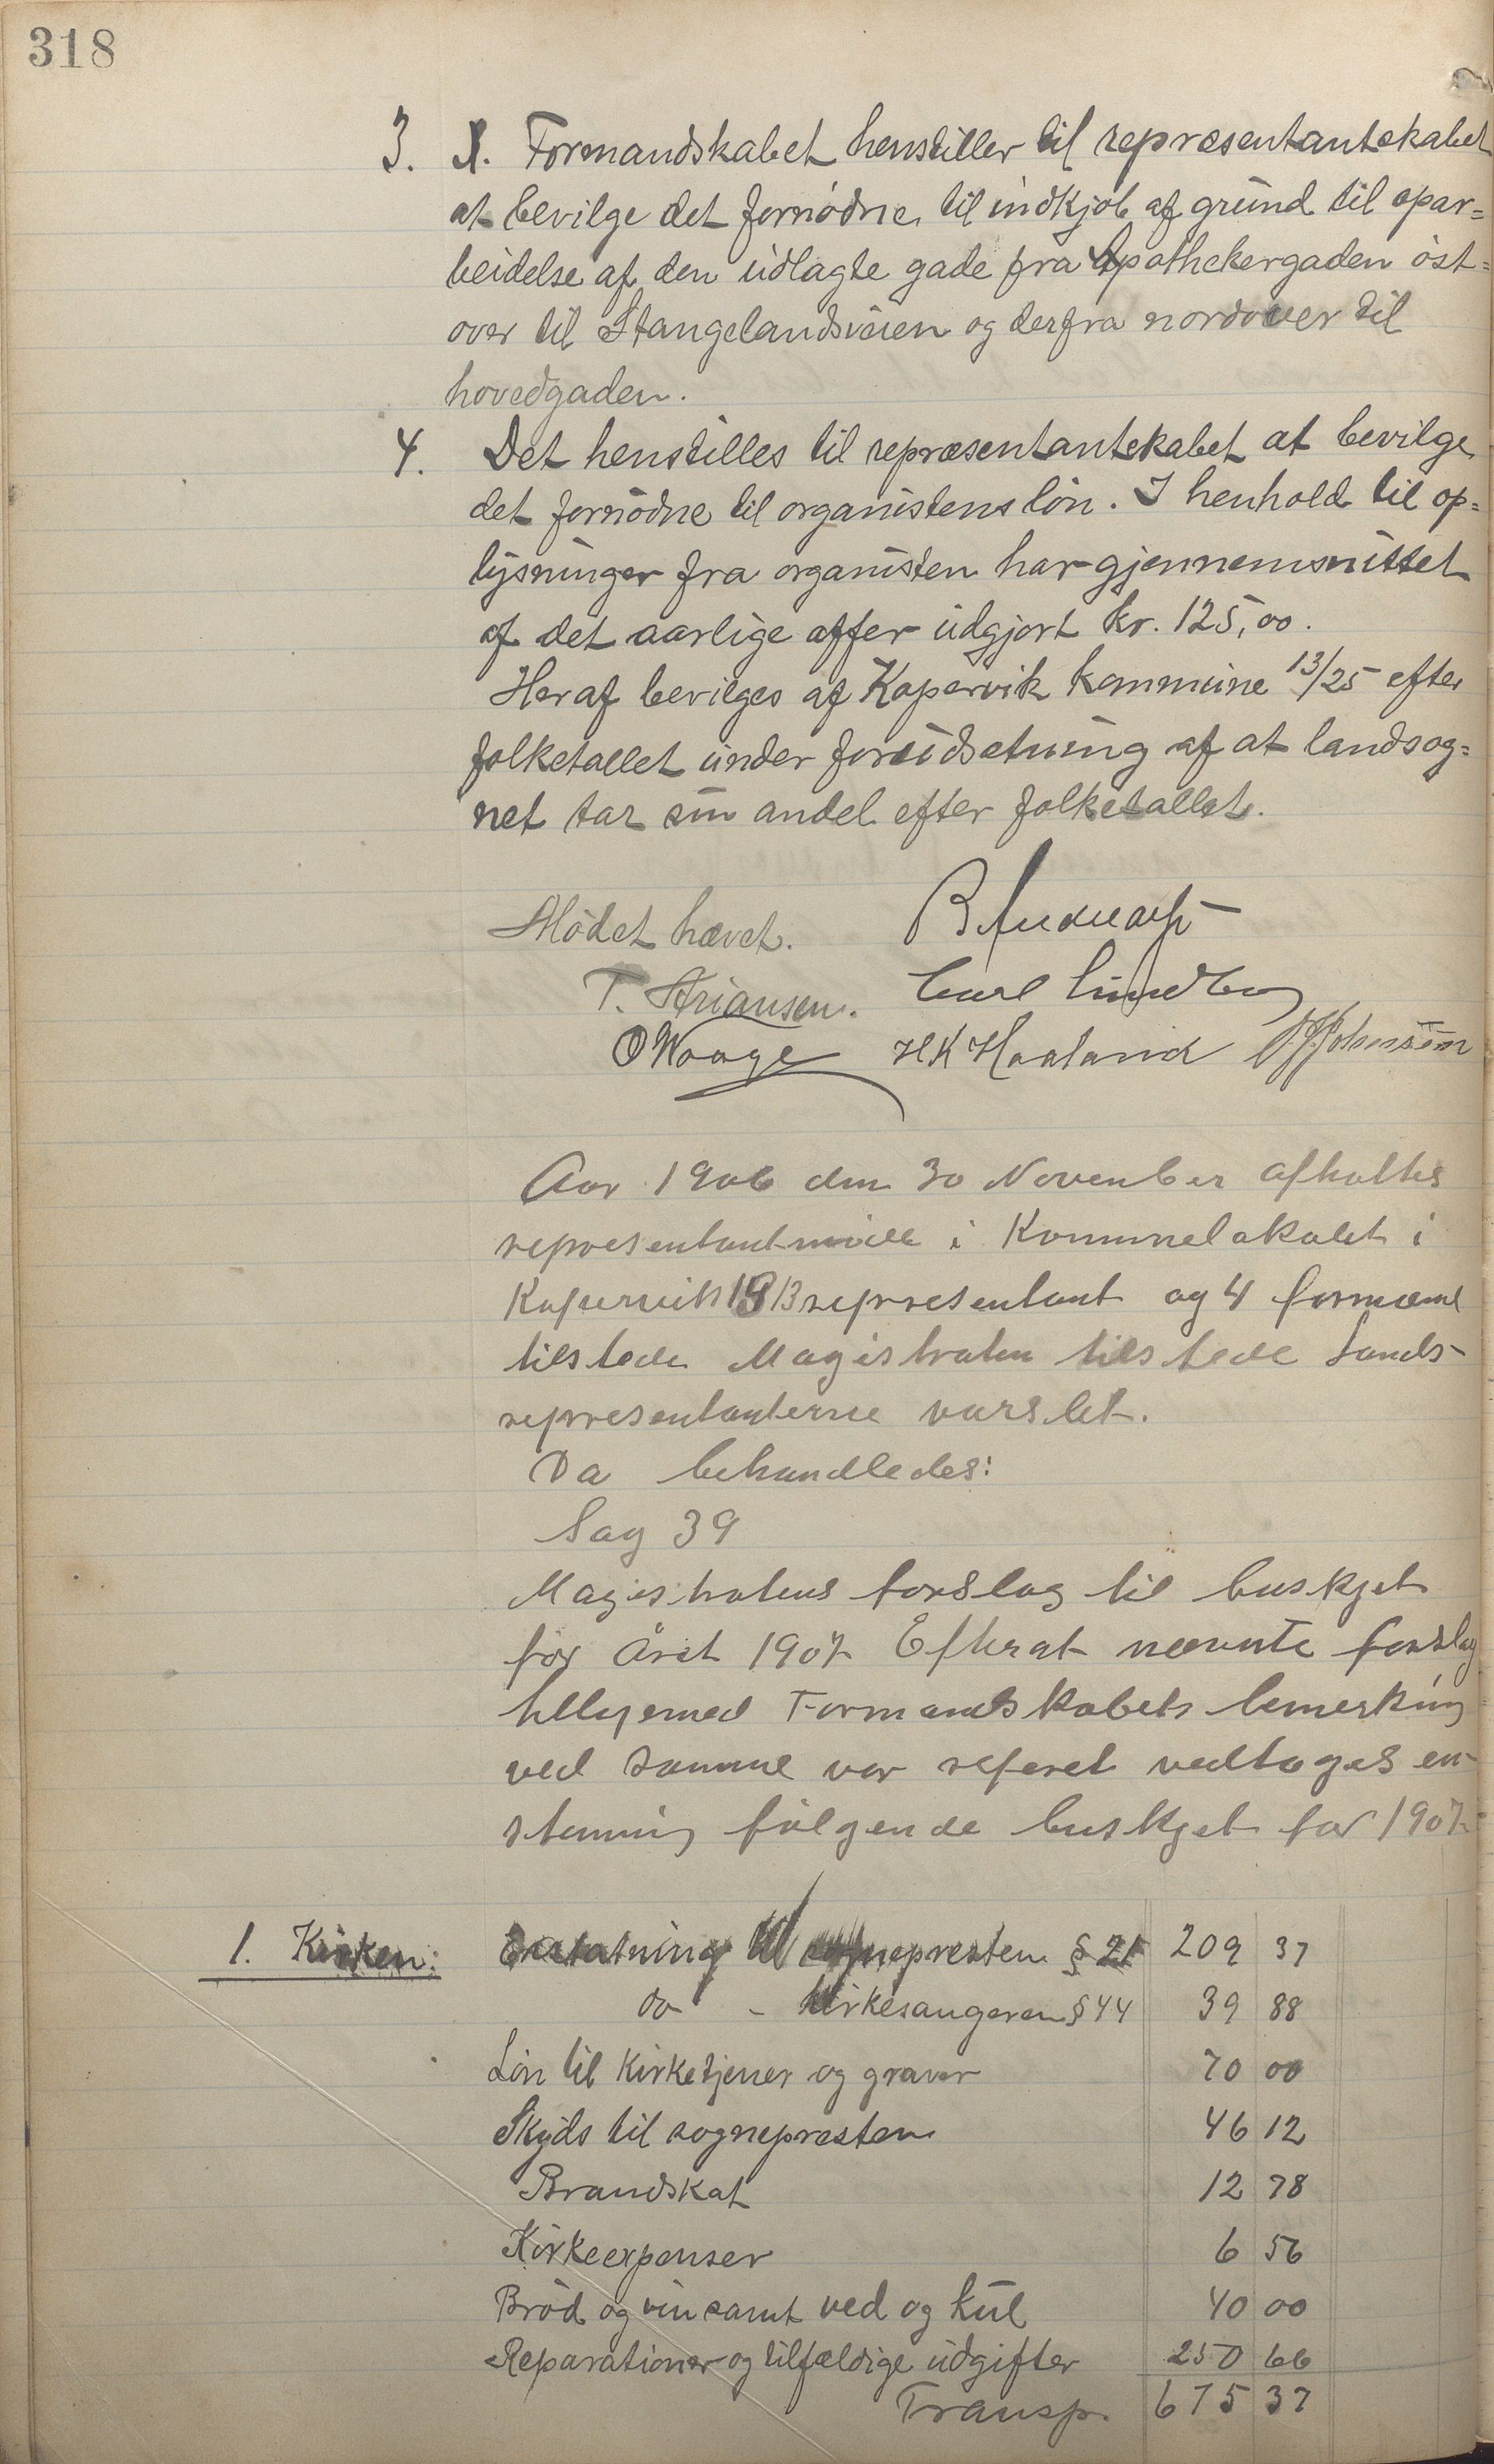 318
3. 1. Formandskabet henstiller til repræsentantskabet
at bevilge det fornødne til indkjøb af grund til opar=
beidelse af den udlagte gade fra Apothekergaden øst=
over til Stangelandsveien og derfra nordover til
hovedgaden.
4. Det henstilles til repræsentantskabet at bevilge
det fornødne til organistens løn. I henhold til op=
lysninger fra organisten har gjennemsnittet
af det aarlige offer udgjort kr. 125,00.
Heraf bevilges af Kopervik kommune 13/25 efter
folketallet under forudsetning af at landsog=
net tar sin andel efter folketallet.
Mødet hævet.
T. Ariansen. Carl Lindberg
O Waage H K Haaland
Aar 1906 den 30 November afholtes
representantmøde i Kommunelokalet i
Kopervik 13 representant og 4 formænd
tilstede Magistraten tilstede Lands-
representanterne varslet.
Da behandledes:
Sag 39
Magistratens forslag til buskjet
for Året 1907 Efterat nævnte forslag
tilligemed Formandskabets bemerkning
ved samme var referet vedtages en-
stemmig følgende buskjet for 1907
1. Kirken: Erstatning til sognepresten § 21 209 37
do - kirkesangeren § 44 39 88
Løn til kirketjener og graver 70 00
Skyds til sognepresten 46 12
Brandskat 12 78
Kirkeexpenser 6 56
Brød og vin samt ved og kul 40 00
Reparationer og tilfældige udgifter 250 66
Transp. 675 37